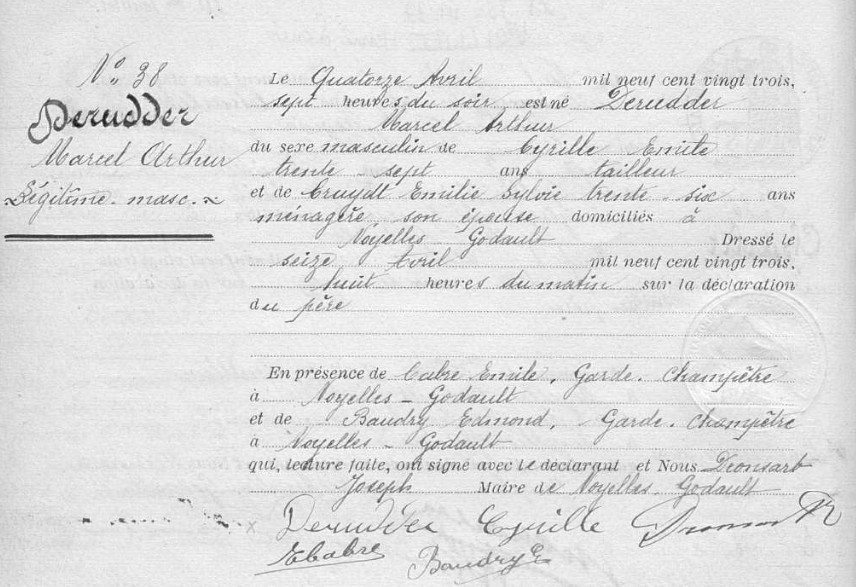 No 38
Derudder
Marcel Arthur
Légitime. masc.
Le Quatorze Avril mil neuf cent vingt trois,
sept heures du soir, est né Derudder
Marcel Arthur
du sexe masculin de Cyrille Emile
trente sept ans tailleur
et de Cruydt Emilie Sylvie trente-six ans
ménagère son épouse domiciliés à
Noyelles Godault Dressé le
seize Avril mil neuf cent vingt trois,
huit heures du matin sur la déclaration
du père
En présence de Cabre Emile, Garde. Champêtre
à Noyelles - Godault
et de Baudry Edmond, Garde. Champêtre
à Noyelles - Godault
qui, lecture faite, ont signé avec le déclarant et Nous Deonsart
Joseph Maire de Noyelles. Godault
Derudder Cyrille
ECabre Baudry E